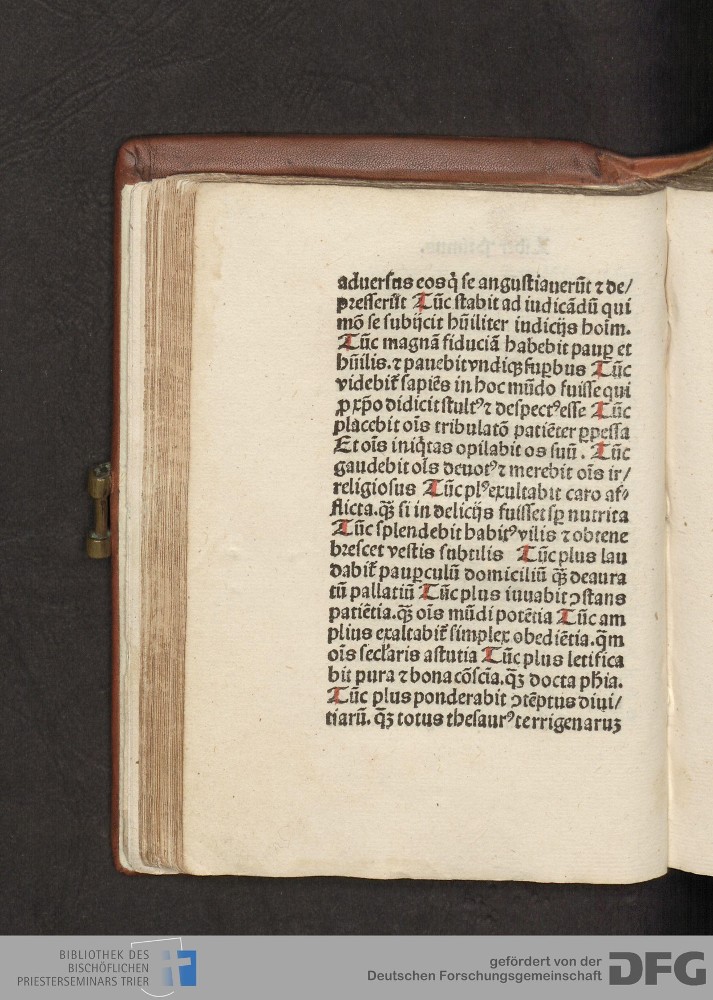 aduersus eos q̇ se angustiauerūt ⁊ de/
presserūt Tūc stabit ad iudicādū qui
mō se subijcit hūiliter iudicijs hoīm.
Tūc magnā fiduciā habebit paup̱ et
hūilis. ⁊ pauebit vndiqꝫ sup̱bus Tūc
videbit᷑ sapiēs in hoc mūdo fuisse qui
ꝓ xp̄o didicit stultꝰ ⁊ despectꝰ esse Tūc
placebit oīs tribulatō patiēter p̱pessa
Et oīs iniq̇tas opilabit os suū. Tūc
gaudebit oīs deuotꝰ ⁊ merebit oīs ir/
religiosus Tūc plꝰ exultabit caro af⸗
flicta. qꝫ̄ si in delicijs fuisset sp̱ nutrita
Tūc splendebit habitꝰ vilis ⁊ obtene
brescet vestis subtilis Tūc plus lau
dabit᷑ paup̱culū domiciliū qꝫ̄ deaura
tū pallatiū Tūc plus iuuabit ꝯstans
patiētia. qꝫ̄ oīs mūdi potētia Tūc am
plius exaltabit᷑ simplex obediētia. q̄m
oīs secl̓aris astutia Tūc plus letifica
bit pura ⁊ bona cōscīa. qꝫ̄ docta ph̄ia.
Tūc plus ponderabit ꝯtēptus diui/
tiarū. qꝫ̄ totus thesaurꝰ terrigenaruꝫ
BIBLIOTHEK DES
BISCHÖFLICHEN
PRIESTERSEMINARS TRIER
gefördert von der
Deutschen Forschungsgemeinschaft DFG